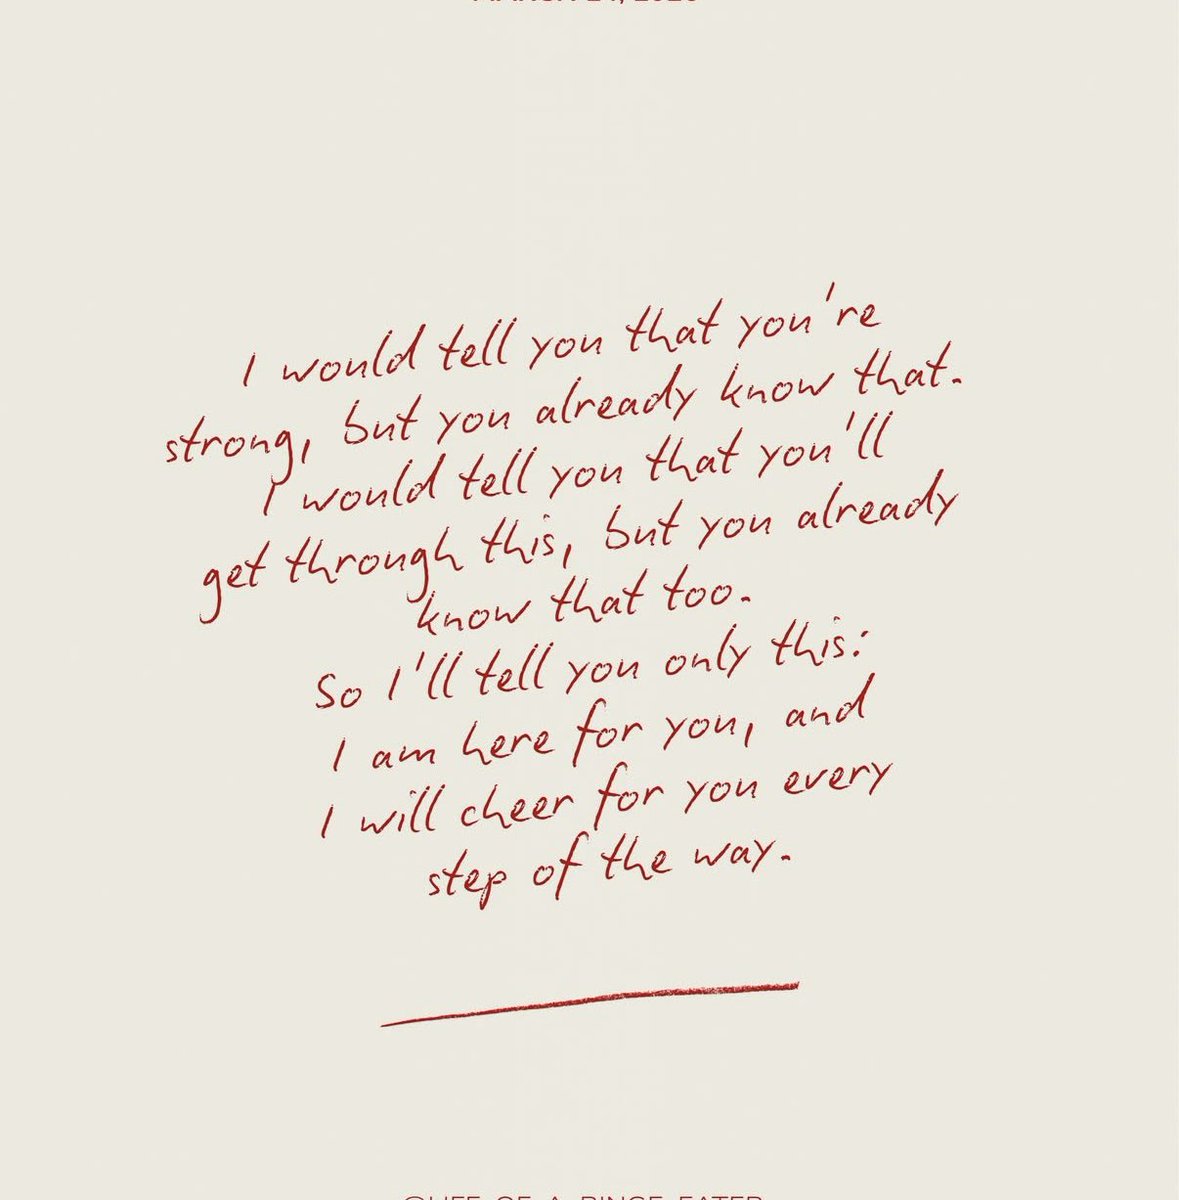 I would tell you that you're
strong, but you already know that.
I would tell you that you'll
get through this, but you already
know that too.
So I'll tell you only this:
I am here for you, and
I will cheer for you every
step of the way.
@LIFE_OF_A_BINGE_EATER